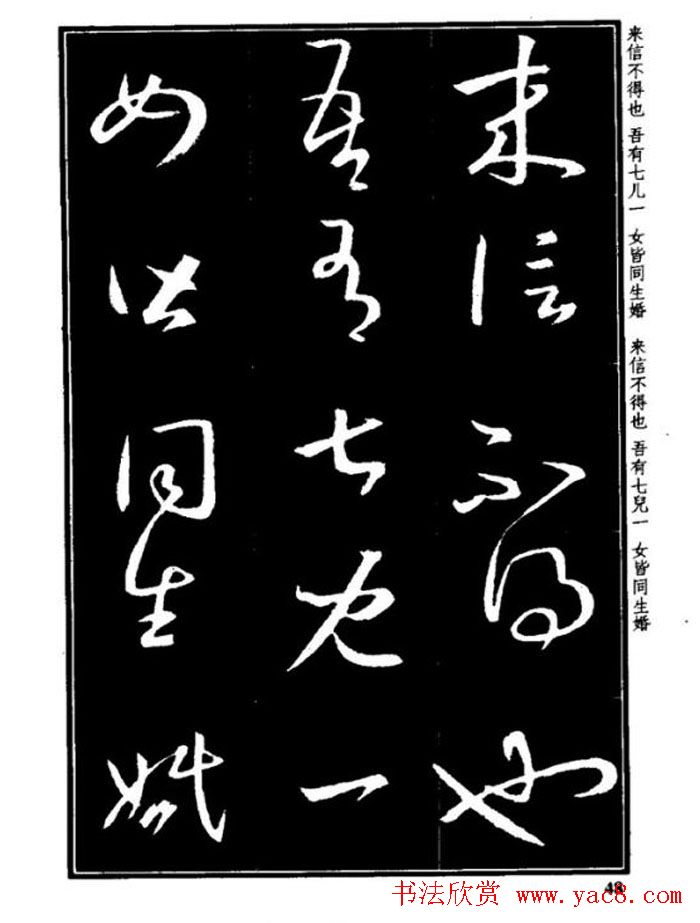 来信不得也
吾有七儿一
女皆同生婚
来信不得也 吾有七儿一 女皆同生婚
来信不得也 吾有七兒一 女皆同生婚
48
书法欣赏 www.yac8.com